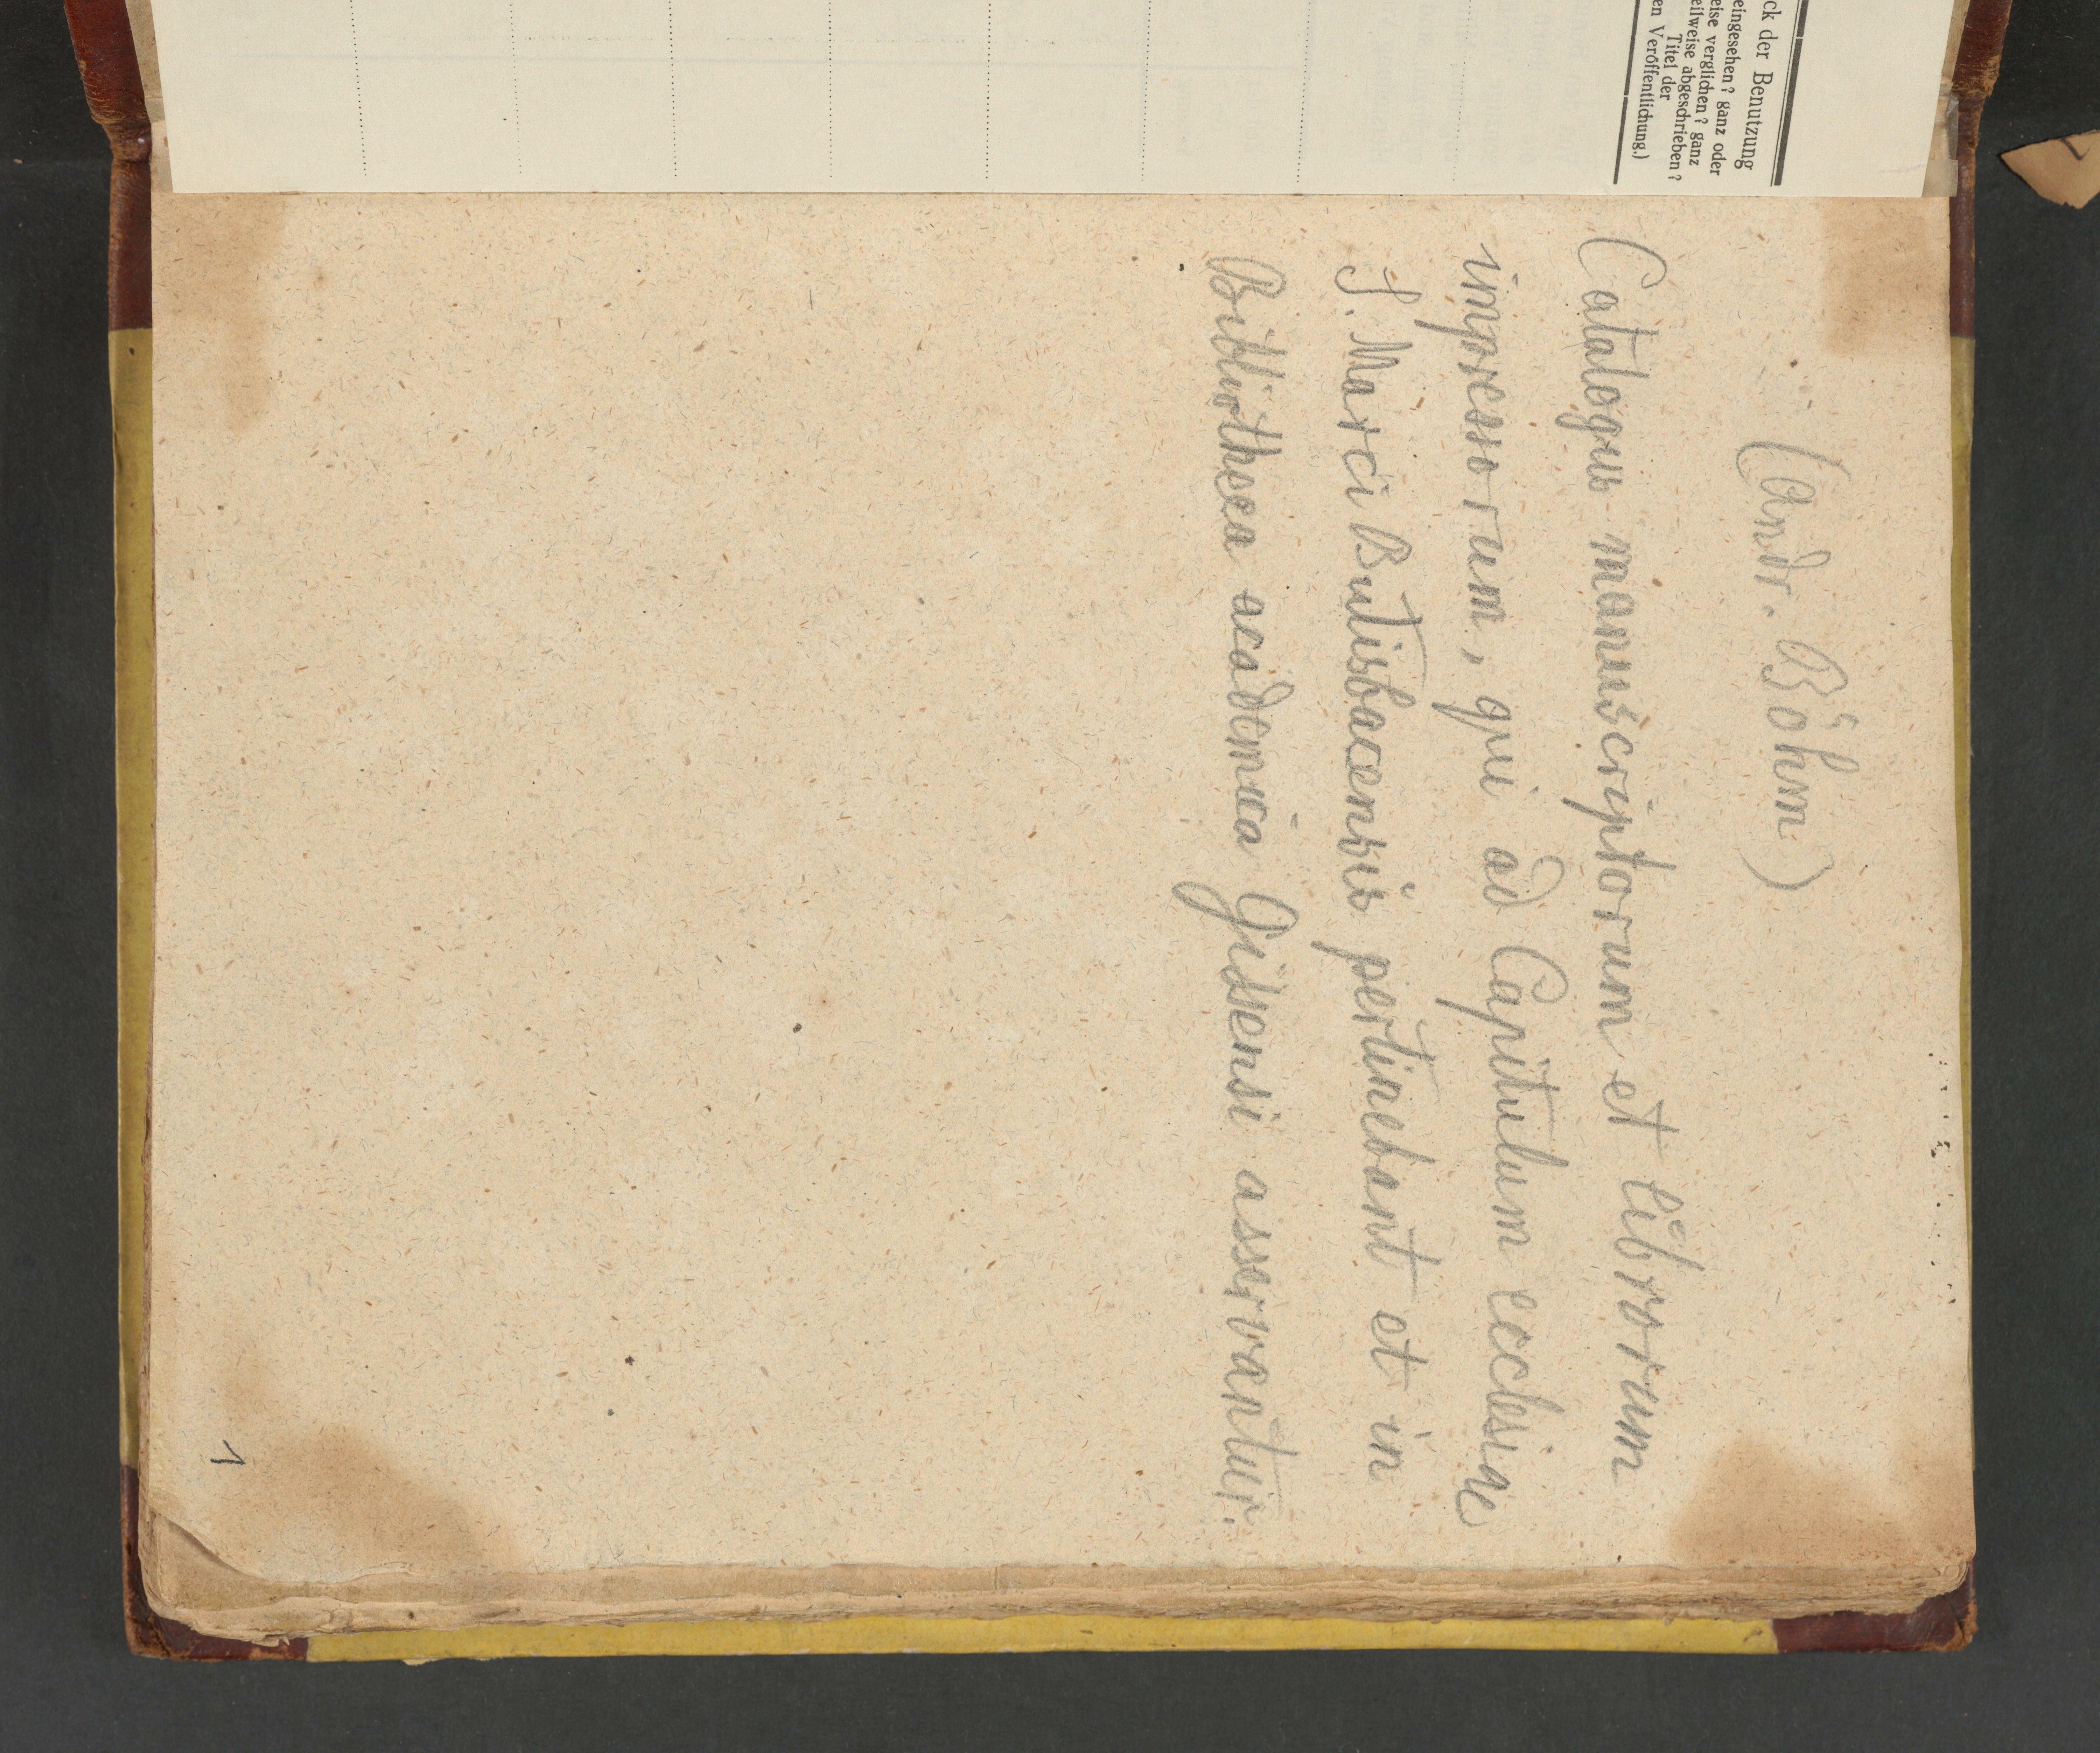 ck der Benutzung
eingesehen? ganz oder
eise verglichen? ganz
eilweise abgeschrieben?
Titel der
en Veröffentlichung.)
(Andr. Böhm)
Catalogus manuscriptorum et librorum
impressorum, qui ad Capitulum ecclesiae
S. Marci Butisbacensis pertinebant et in
Bibliotheca academica Gissensi asservantur.
1